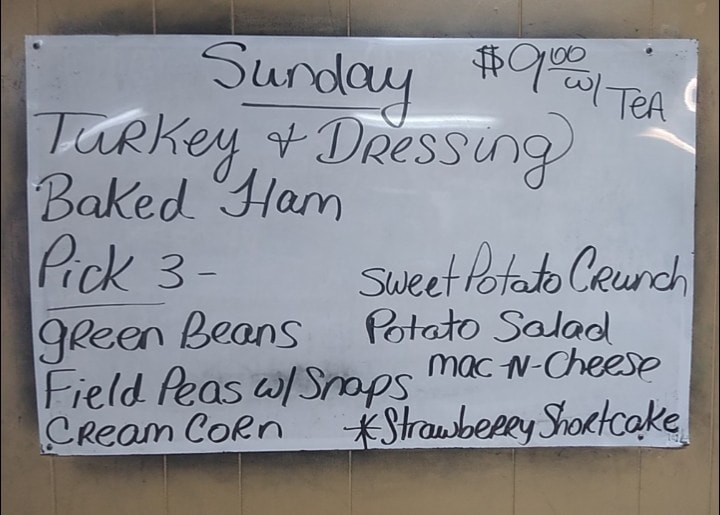 Sunday $9.00 w/ TEA
Turkey & Dressing
Baked Ham
Pick 3 -
Sweet Potato Crunch
green Beans
Potato Salad
Field Peas w/ Snaps
mac-N-Cheese
Cream Corn
*Strawberry Shortcake